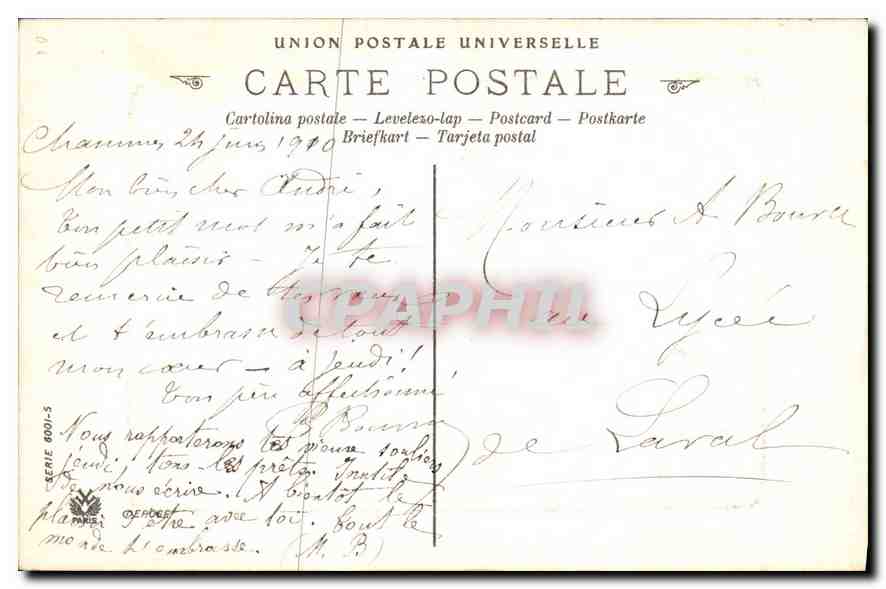 UNION POSTALE UNIVERSELLE
CARTE POSTALE
Cartolina postale — Levelezo-lap — Postcard — Postkarte
Briefkart — Tarjeta postal
24 juin 1910
Mon bien cher André,
Ton petit mot m'a fait
bien plaisir — Je te
remercie de tes vœux
et t'embrasse de tout
mon cœur — à jeudi!
Ton père affectionné
Nous rapporterons tes vieux souliers
jeudi, tous les prêts. Inutile
de nous écrire. A bientôt le
plaisir d'être avec toi. Tout le
monde t'embrasse. (M. B)
Monsieur A
au Lycée
de Laval
CPAPHIL
SERIE 6001-5
PARIS
DEPOSE